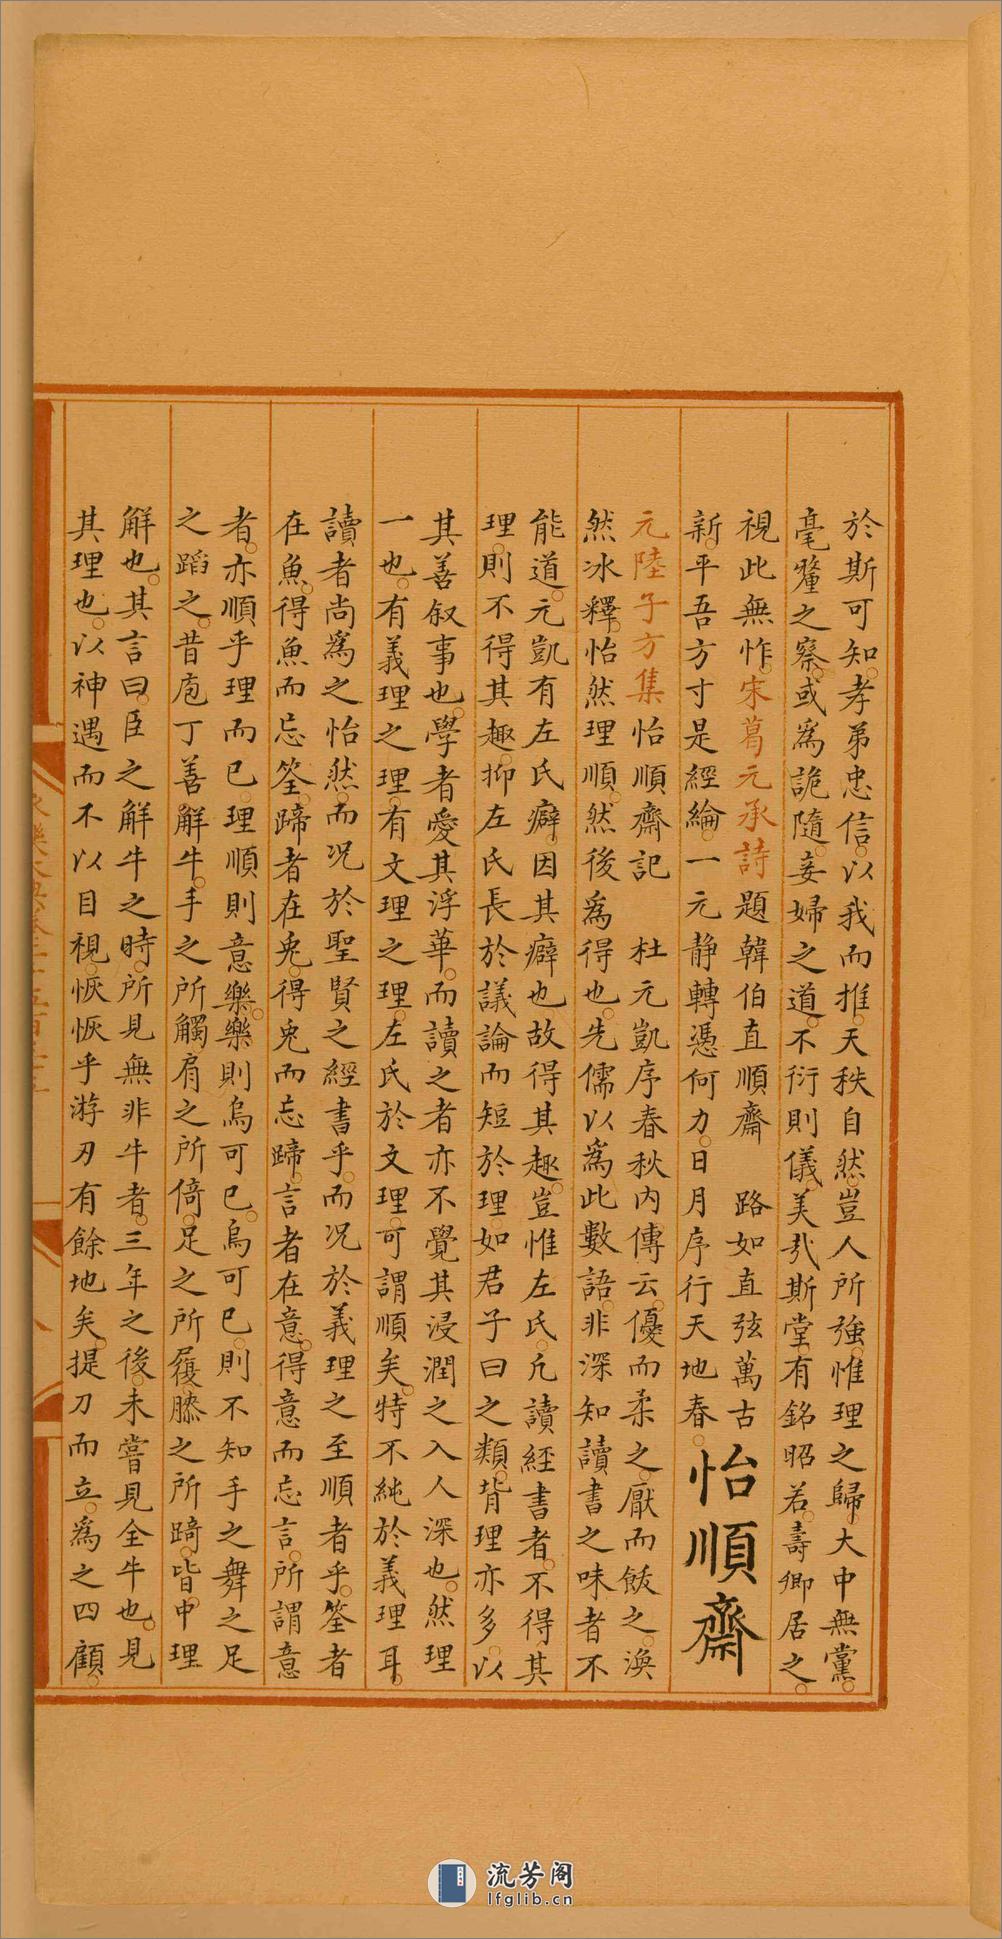 於斯可知。孝弟忠信。以我而推。天秩自然。豈人所強。惟理之歸。大中無黨。
毫釐之察。或爲詭隨。妾婦之道。不衍則儀。美哉斯堂。有銘昭若。壽卿居之。
視此無怍。宋葛元承詩題韓伯直順齋 路如直弦萬古
新。平吾方寸是經綸。一元静轉憑何力。日月序行天地春。怡順齋
元陸子方集怡順齋記 杜元凱序春秋内傳云。優而柔之。厭而飫之。渙
然冰釋。怡然理順。然後爲得也。先儒以爲此數語。非深知讀書之味者不
能道。元凱有左氏癖。因其癖也。故得其趣。豈惟左氏。凡讀經書者。不得其
理。則不得其趣。抑左氏長於議論而短於理。如君子曰之類。背理亦多。以
其善叙事也。學者愛其浮華。而讀之者亦不覺其浸潤之入人深也。然理
一也。有義理之理。有文理之理。左氏於文理。可謂順矣。特不純於義理耳。
讀者尚爲之怡然。而况於聖賢之經書乎。而况於義理之至順者乎。筌者
在魚。得魚而忘筌。蹄者在兎。得兎而忘蹄。言者在意。得意而忘言。所謂意
者。亦順乎理而已。理順則意樂。樂則烏可已。烏可已。則不知手之舞之足
之蹈之。昔庖丁善解牛。手之所觸肩之所倚。足之所履膝之所踦。皆中理
解也。其言曰。臣之解牛之時。所見無非牛者。三年之後。未嘗見全牛也。見
其理也。以神遇而不以目視。恢恢乎游刃有餘地矣。提刀而立。爲之四顧。
流芳阁
lfglib.cn